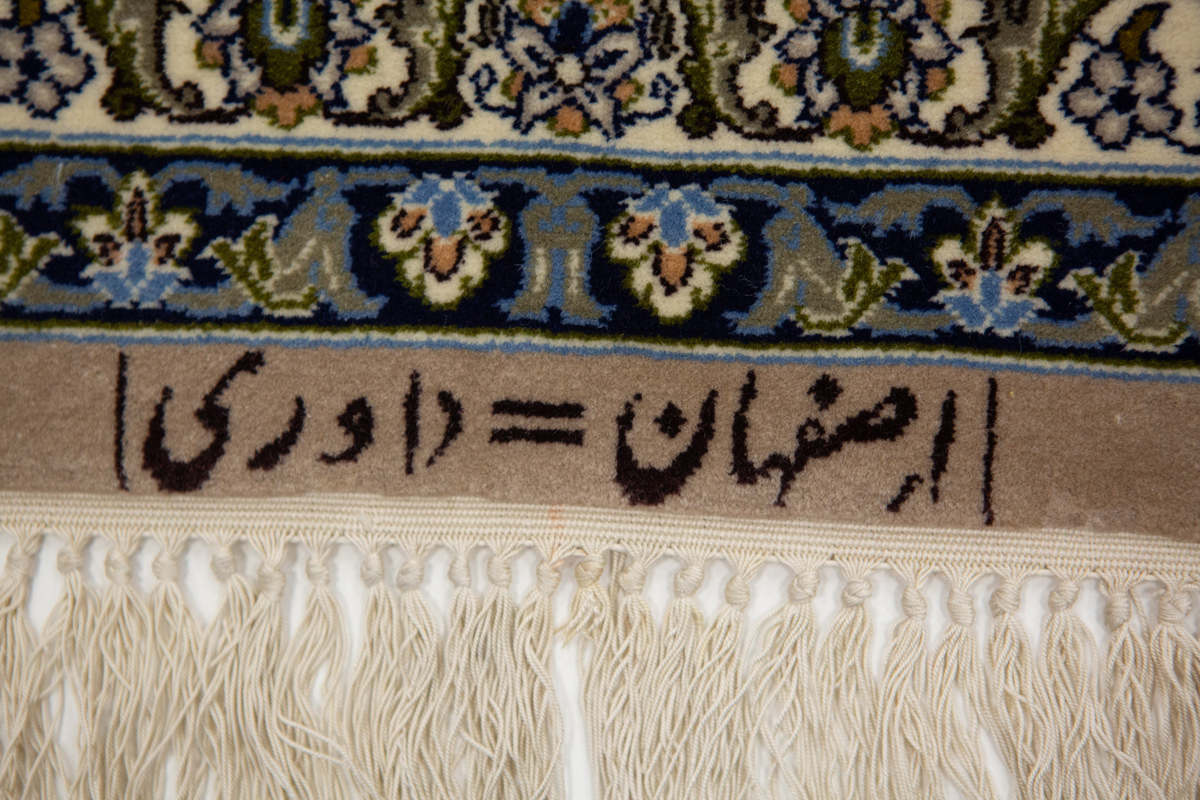 | اِصفهان = داوری |